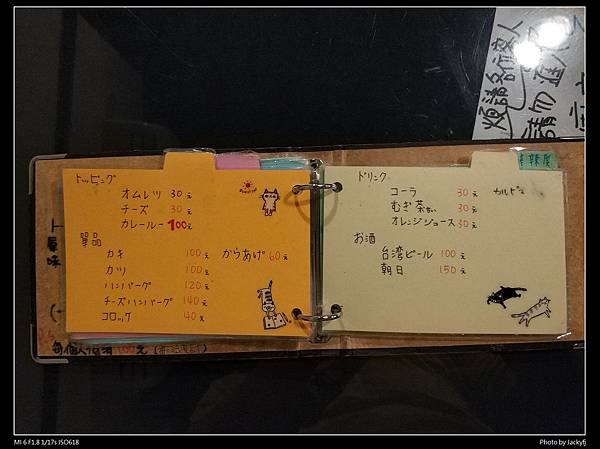 煩請各位客人
請勿進入
トッピング
オムレツ 30元
チーズ 30元
カレールー 100元
單品
カキ 100元 からあげ 60元
カツ 100元
ハンバーグ 120元
チーズハンバーグ 140元
コロッケ 40元
辣度
ドリンク
コーラ 30元 カルピス
むぎ茶 30元
オレンジジュース 30元
お酒
台湾ビール 100元
朝日 150元
MI 6 F1.8 1/17s ISO618
Photo by Jackyfj